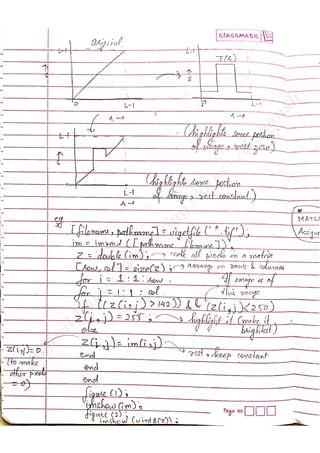 classmate
Original
L-1
L-1
T(r)
S
S
0
L-1
0
L-1
r→
r→
L-1
(highlights some portion
of image, rest zero)
S
(highlights some portion
of image, rest constant)
L-1
r→
eg
MATLA
Assign
[filename, pathname] = uigetfile('*.tif');
im = imread([pathname filename]);
z = double(im); → make all pixels in a matrix
[row, col] = size(z); → arrange in rows & columns
for i = 1:1:row
If image is of
for j = 1:1:col
this range
if ((z(i,j) > 142)) && (z(i,j) < 250)
z(i,j) = 255; → highlight it (make it
brightest)
else
z(i,j) = im(i,j)
z(i,j)=0.
(to make
other pixels
= 0)
rest, keep constant
end
end
end
figure(1);
imshow(im);
figure(2);
imshow(uint8(z));
Page No